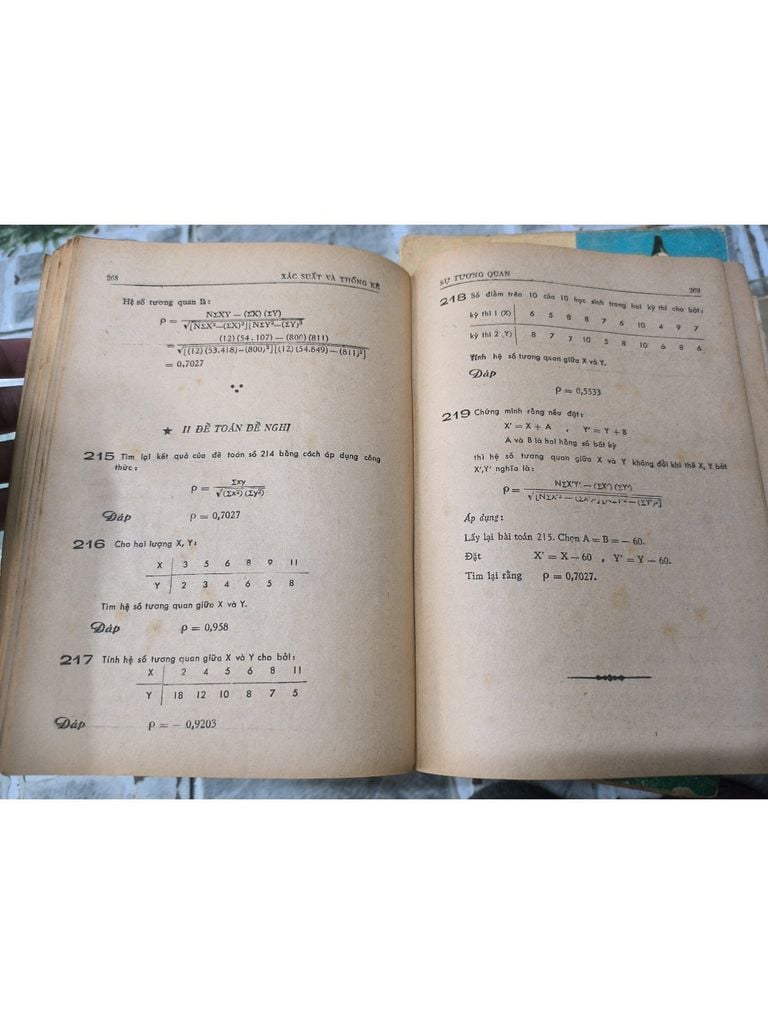 268 XÁC SUẤT VÀ THỐNG KÊ
Hệ số tương quan là:
ρ = NΣXY — (ΣX) (ΣY)
√[NΣX²—(ΣX)²][NΣY²—(ΣY)²]
= (12) (54.107) — (800) (811)
√[(12) (53.418)—(800)²][(12) (54.849) — (811)²]
= 0,7027
★ II ĐỀ TOÁN ĐỀ NGHỊ
215 Tìm lại kết quả của đề toán số 214 bằng cách áp dụng công
thức:
ρ = Σxy
√(Σx²) (Σy²)
Đáp ρ = 0,7027
216 Cho hai lượng X, Y:
X 3 5 6 8 9 11
Y 2 3 4 6 5 8
Tìm hệ số tương quan giữa X và Y.
Đáp ρ = 0,958
217 Tính hệ số tương quan giữa X và Y cho bởi:
X 2 4 5 6 8 11
Y 18 12 10 8 7 5
Đáp ρ = — 0,9203
SỰ TƯƠNG QUAN 269
218 Số điểm trên 10 của 10 học sinh trong hai kỳ thi cho bởi:
kỳ thi 1 (X) 6 5 8 8 7 6 10 4 9 7
kỳ thi 2 (Y) 8 7 7 10 5 8 10 6 8 6
Tính hệ số tương quan giữa X và Y.
Đáp
ρ = 0,5533
219 Chứng minh rằng nếu đặt:
X' = X + A , Y' = Y + B
A và B là hai hằng số bất kỳ
thì hệ số tương quan giữa X và Y không đổi khi thế X, Y bởi
X',Y' nghĩa là:
ρ = NΣX'Y' — (ΣX') (ΣY')
Áp dụng:
Lấy lại bài toán 215. Chọn A = B = — 60.
Đặt X' = X — 60 , Y' = Y — 60.
Tìm lại rằng ρ = 0,7027.